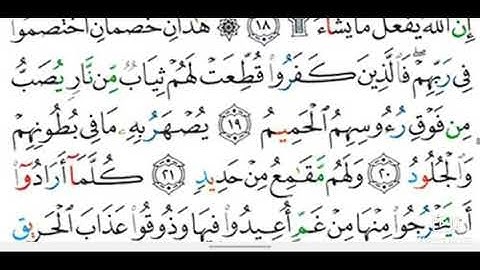 إِنَّ ٱللَّهَ يَفْعَلُ مَا يَشَآءُ ۩ ١٨ ۞ هَٰذَانِ خَصْمَانِ ٱخْتَصَمُوا۟
فِى رَبِّهِمْ ۖ فَٱلَّذِينَ كَفَرُوا۟ قُطِّعَتْ لَهُمْ ثِيَابٌ مِّن نَّارٍ يُصَبُّ
مِن فَوْقِ رُءُوسِهِمُ ٱلْحَمِيمُ ١٩ يُصْهَرُ بِهِۦ مَا فِى بُطُونِهِمْ
وَٱلْجُلُودُ ٢٠ وَلَهُم مَّقَٰمِعُ مِنْ حَدِيدٍ ٢١ كُلَّمَآ أَرَادُوٓا۟
أَن يَخْرُجُوا۟ مِنْهَا مِنْ غَمٍّ أُعِيدُوا۟ فِيهَا وَذُوقُوا۟ عَذَابَ ٱلْحَرِيقِ